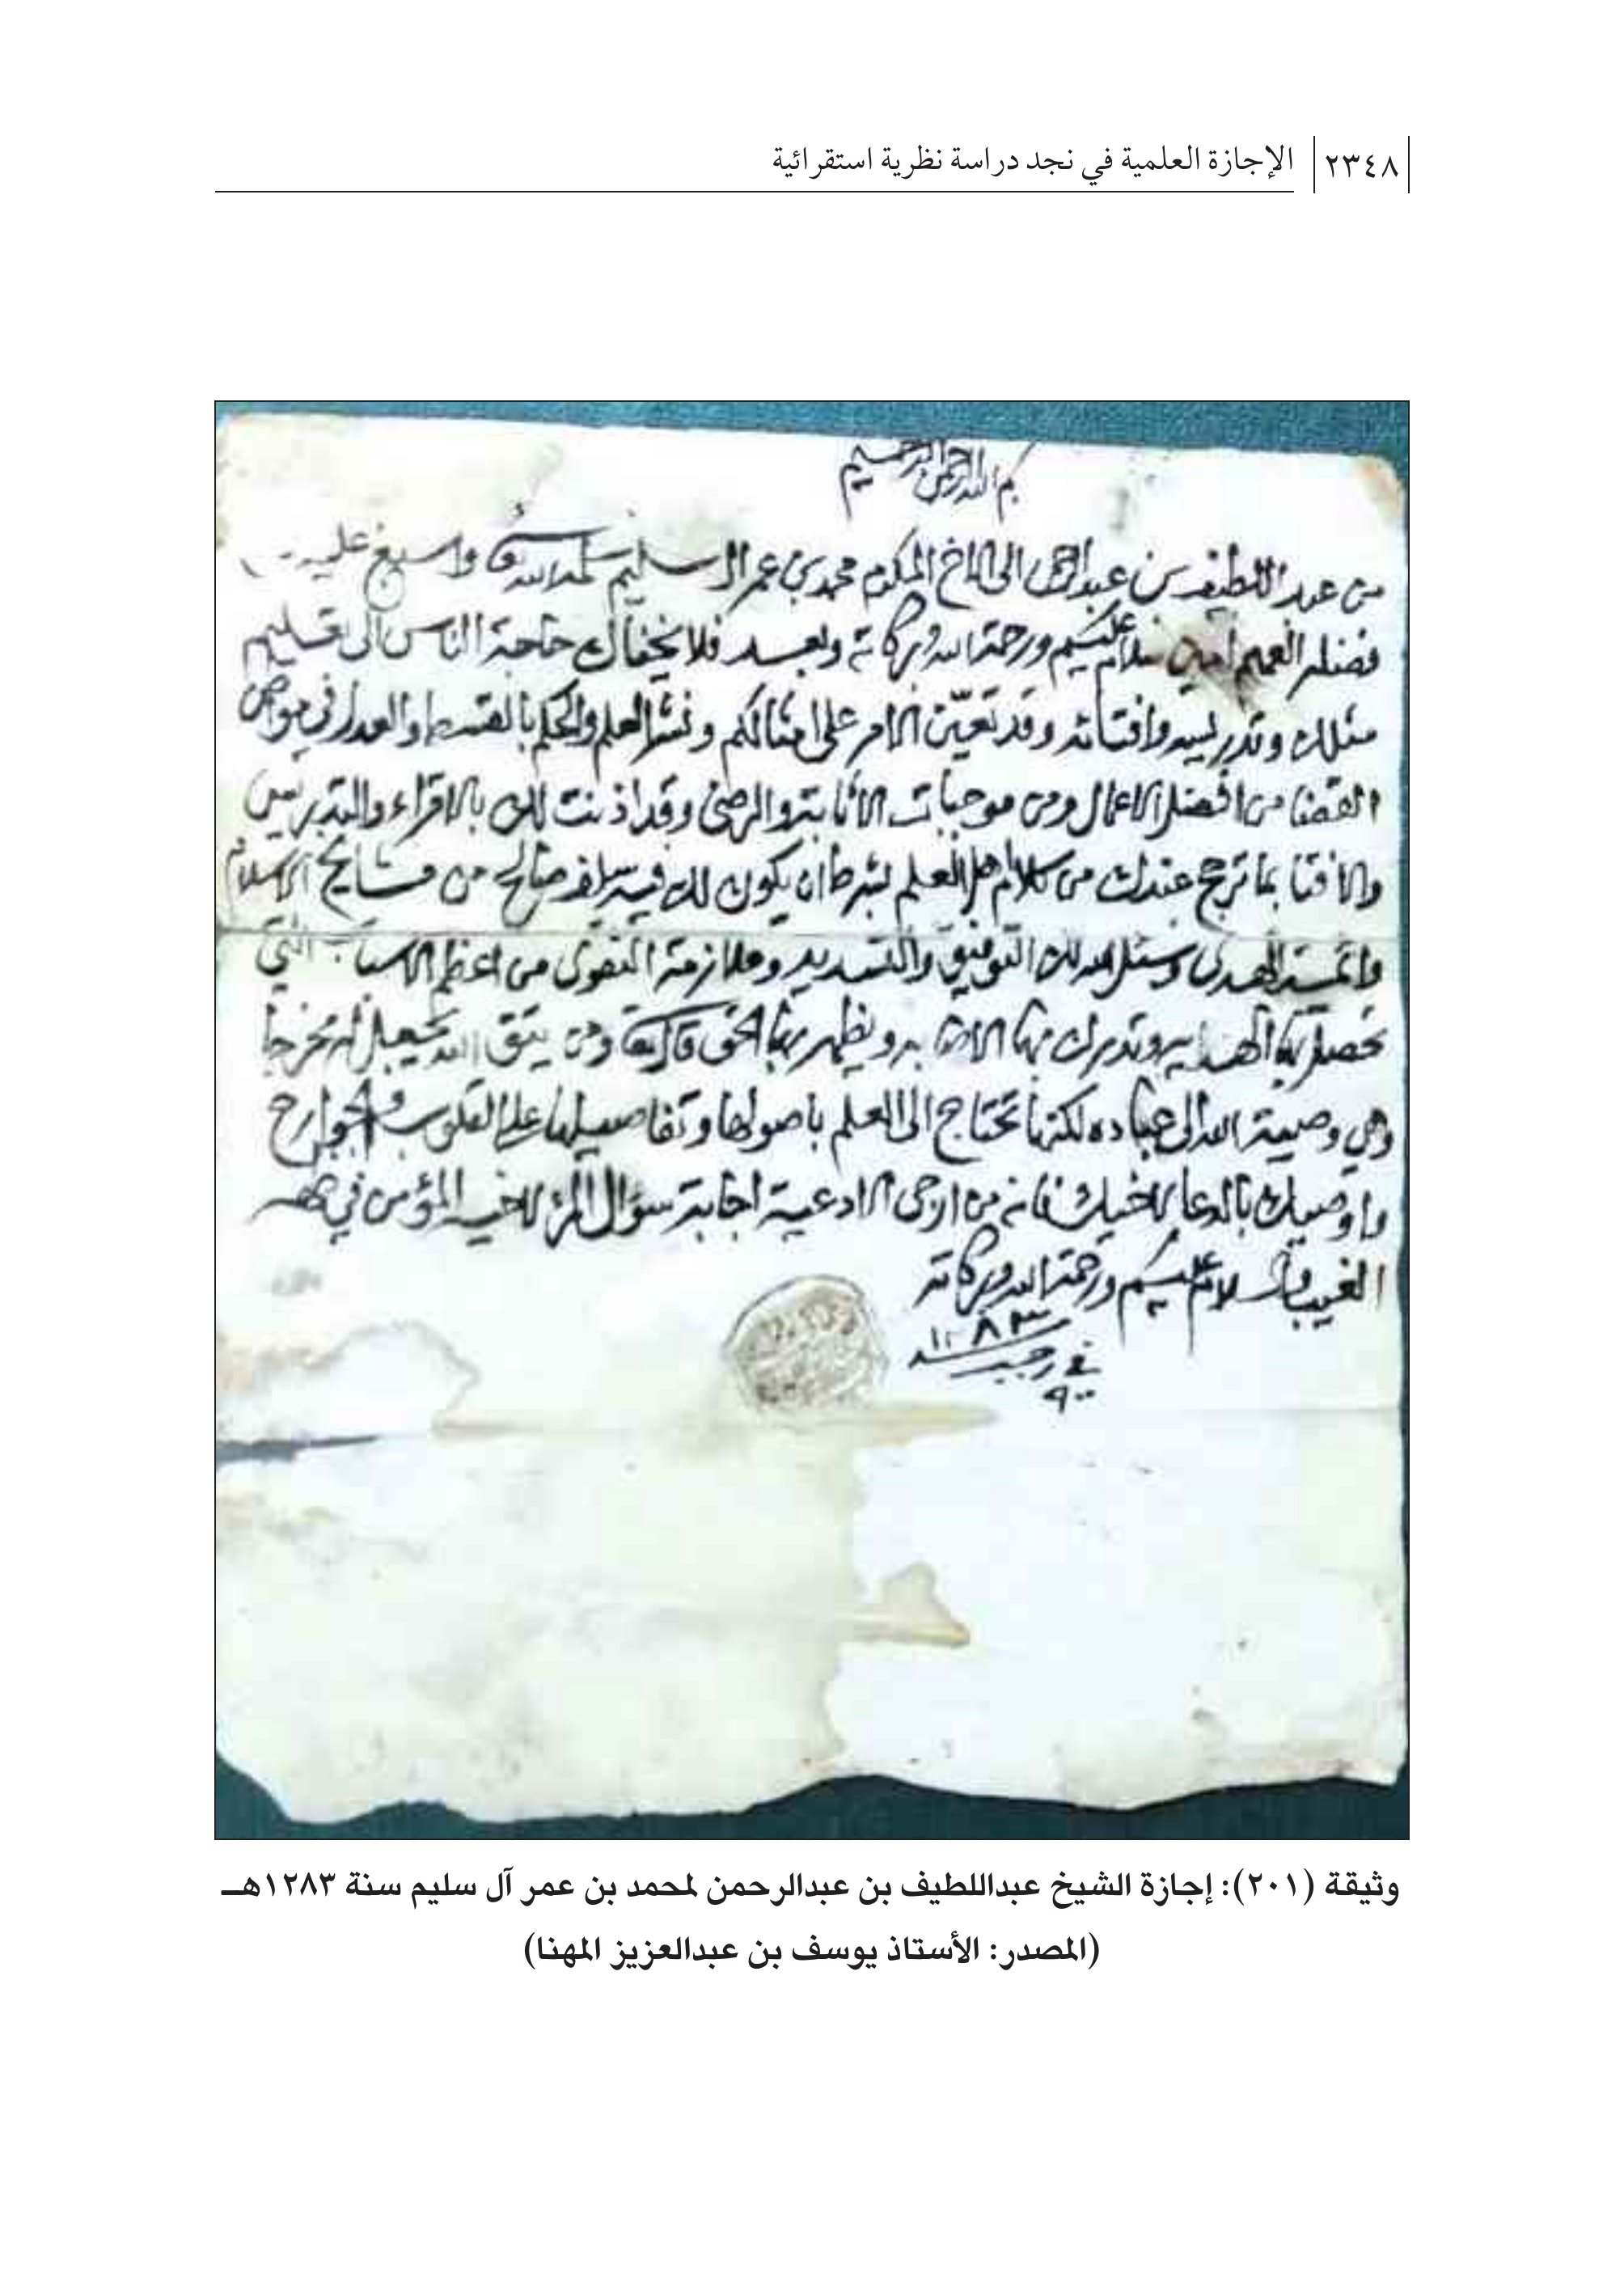 ٢٣٤٨ الإجازة العلمية في نجد دراسة نظرية استقرائية
بسم الله الرحمن الرحيم
من عبد اللطيف بن عبد الرحمن الى الاخ المكرم محمد بن عمر ال سليم سلمه الله تعالى واسبغ عليه
فضله العميم امين سلام عليكم ورحمة الله وبركاته وبعد فلا يخفاك حاجة الناس الى تعليم
مثلك وتدريسه وافتائه وقد تعيّن الامر على امثالكم ونشر العلم والحكم بالقسط والعدل في
القضا من افضل الاعمال ومن موجبات الاثابة والرضى وقد اذنت لك بالاقراء والتدريس
والافتا بما ترجح عندك من كلام اهل العلم بشرط ان يكون لك فيه سلف صالح من مشايخ الاسلام
وائمة الهدى ونسئل الله لك التوفيق والتسديد وملازمة التقوى من اعظم الاسباب التي
تحصل بها الهدايه وتدرك بها ويظهر بها الحق قال تعالى ومن يتق الله يجعل له مخرجا
وهي وصية الله الى عباده لكنها تحتاج الى العلم باصولها وتفاصيلها على القلوب والجوارح
واوصيك بالدعا لاخيك فانه من ارجى الادعية اجابة سؤال المرء لاخيه المؤمن في ظهر
الغيب والسلام عليكم ورحمة الله وبركاته
في رجب
وثيقة (٢٠١): إجازة الشيخ عبداللطيف بن عبدالرحمن لمحمد بن عمر آل سليم سنة ١٢٨٣هـ
(المصدر: الأستاذ يوسف بن عبدالعزيز المهنا)